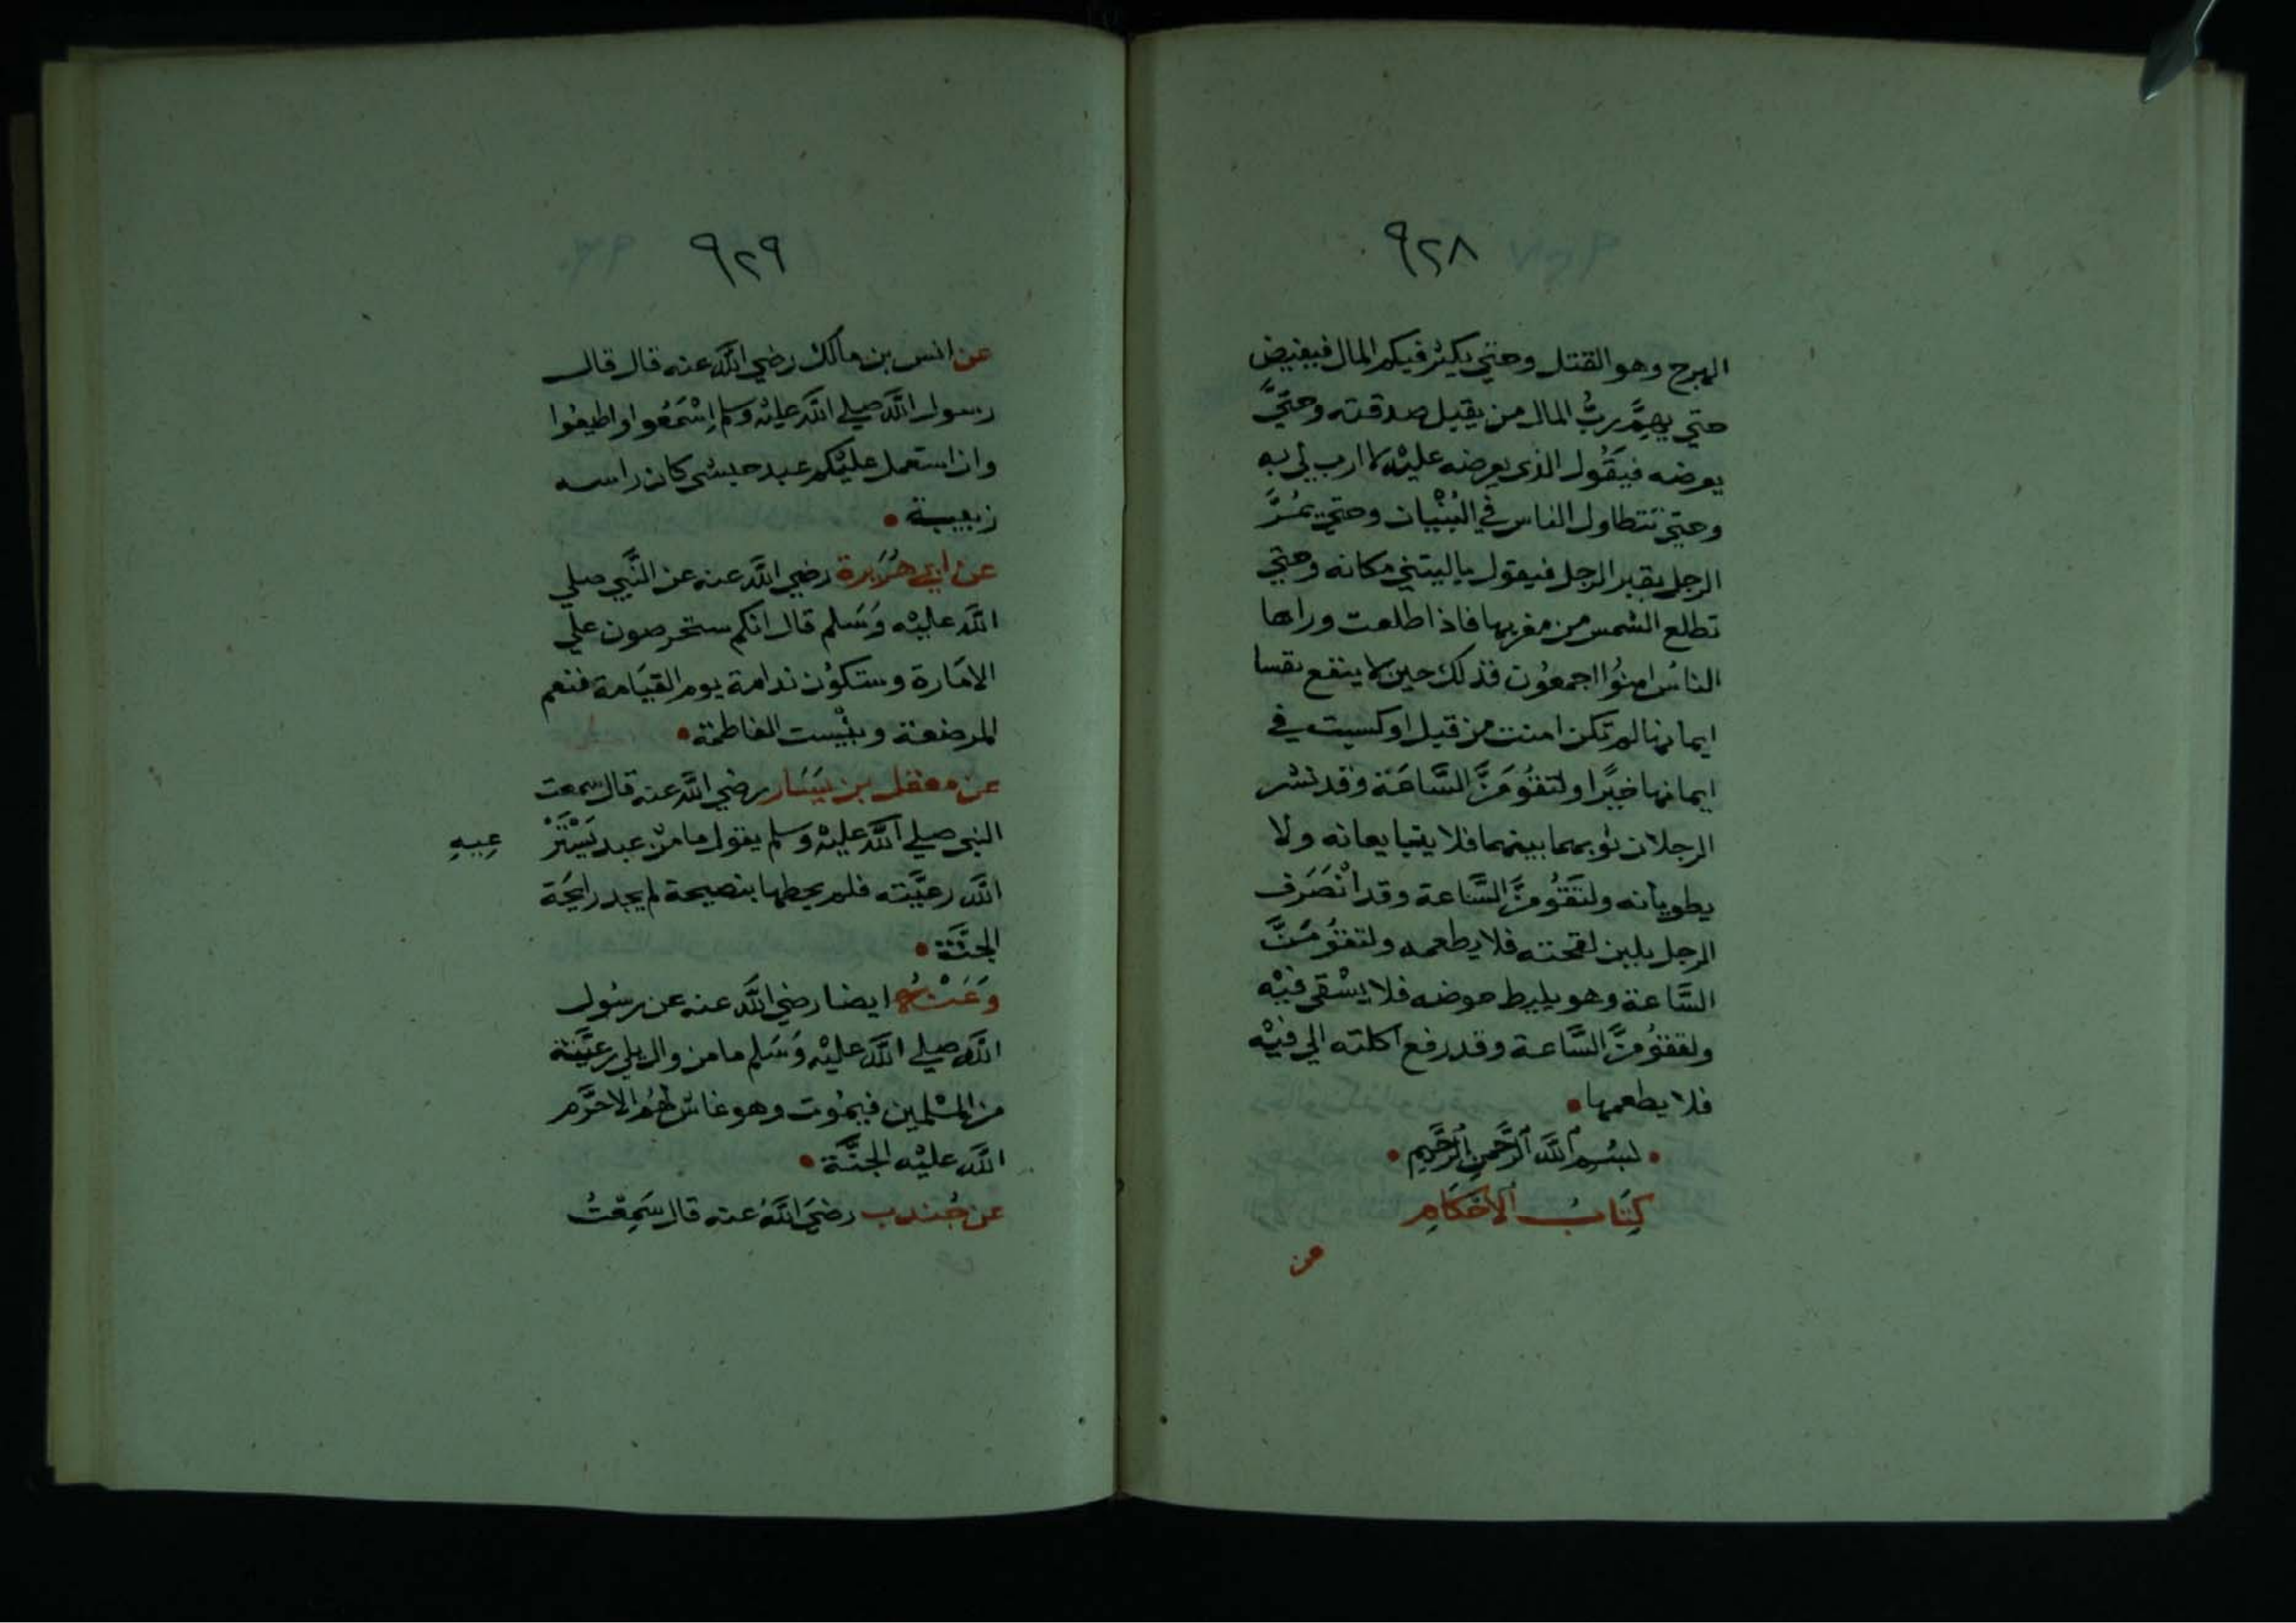 ٩٢٨
الهرج وهو القتل وحتي يكثر فيكم المال فيفيض
حتي يهمَّ ربُّ المال من يقبل صدقته وحتيَّ
يعرضه فيقُول الذي يعرضه عليْه لا ارب لي به
وحتي تتطاول الناس في البُنْيان وحتي يمُرَّ
الرجل بقبر الرجل فيقول ياليتني مكانه وحتي
تطلع الشمس من مغربها فاذا طلعت وراها
الناسُ امنوُا اجمعوُن فذلك حين لا ينفع نفسا
ايمانها لم تكن امنت من قبل او كسبت في
ايمانها خيرًا ولتقوُمَنَّ السَّاعَة وقد نشر
الرجلان ثوبهما بينهما فلا يتبايعانه ولا
يطويانه ولتقُومنَّ السَّاعة وقد انْصَرَف
الرجل بلبن لقحته فلا يطعمه ولتقوُمَنَّ
السَّاعة وهو يليط حوضه فلا يسْقي فيْه
ولتقوُمنَّ السَّاعة وقد رفع اكلته الي فيْه
فلا يطعمها
بسْم اللَّه الرَّحمن الرَّحيم
كِتَابُ الاحْكَامِ
عن
٩٢٩
عن انس بن مالك رضي اللَّه عنه قال قال
رسول اللَّه صلي اللَّه عليْه وسلم اِسْمَعُوا واطيعُوا
وان استعمل عليْكم عبد حبشي كان راسه
زبيبة
عن ابي هُرَيرة رضي اللَّه عنه عن النَّبي صلي
اللَّه عليْه وَسَلم قال انكم ستحرصون علي
الامَارة وستكوُن ندامة يوم القيَامة فنعم
المرضعة وبئْيست الفاطمة
عن معقل بن يَسَار رضي اللَّه عنه قال سمعت
النبي صلي اللَّه عليْه وسلم يقول ما منْ عبد يَسْتَرْ
عِيهِ
اللَّه رعيَّته فلم يحطها بنصيحة لم يجد رايحَة
الجنَّة
وَعَنْهُ ايضا رضي اللَّه عنه عن رسُول
اللَّه صلي اللَّه عليْه وَسَلم ما من وال يلي رعيَّة
من المسْلمين فيموُت وهو غاش لهُم الا حرَّم
اللَّه عليْه الجنَّة
عن جُندب رضيَ اللَّهُ عنه قال سَمِعْتُ